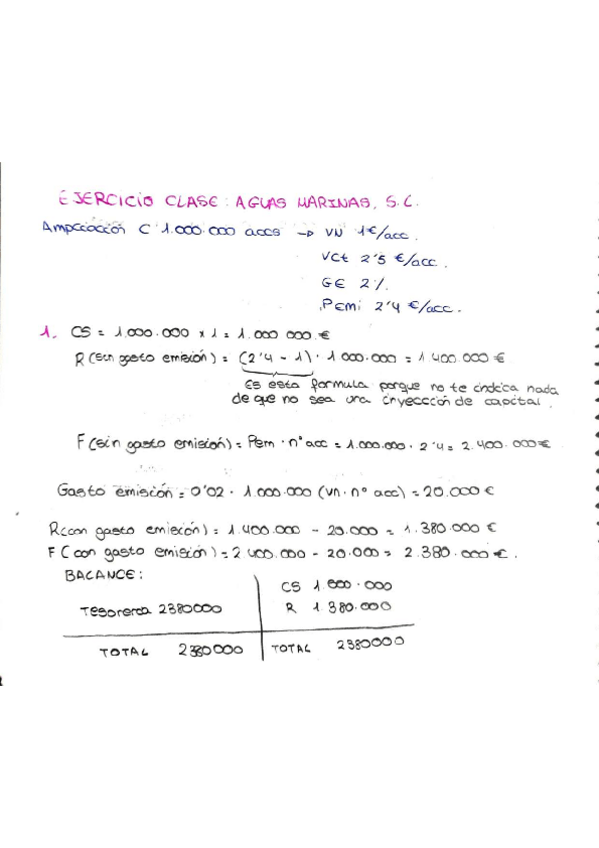 EJERCICIO CLASE: AGUAS MARINAS, S.L.
Ampliación C 1.000.000 accs → VN 1€/acc.
VCt 2'5 €/acc.
GE 2%
PEmi 2'4 €/acc.
1. CS = 1.000.000 x 1 = 1.000 000.€
R (sin gasto emisión) = (2'4 - 1) · 1 000.000 = 1 400.000 €
Es esta formula porque no te indica nada
de que no sea una inyeccción de capital.
F (sin gasto emisión) = Pem · nº acc = 1.000.000 · 2'4 = 2.400.000€
Gasto emisión = 0'02 · 1.000.000 (vn · nº acc) = 20.000 €
R (con gasto emisión) = 1.400.000 - 20.000 = 1.380.000 €
F (con gasto emisión) = 2 400.000 - 20.000 = 2.380.000 €.
BALANCE:
CS 1.000.000
Tesorería 2380000 R 1.380.000
TOTAL 2380000 TOTAL 2380000